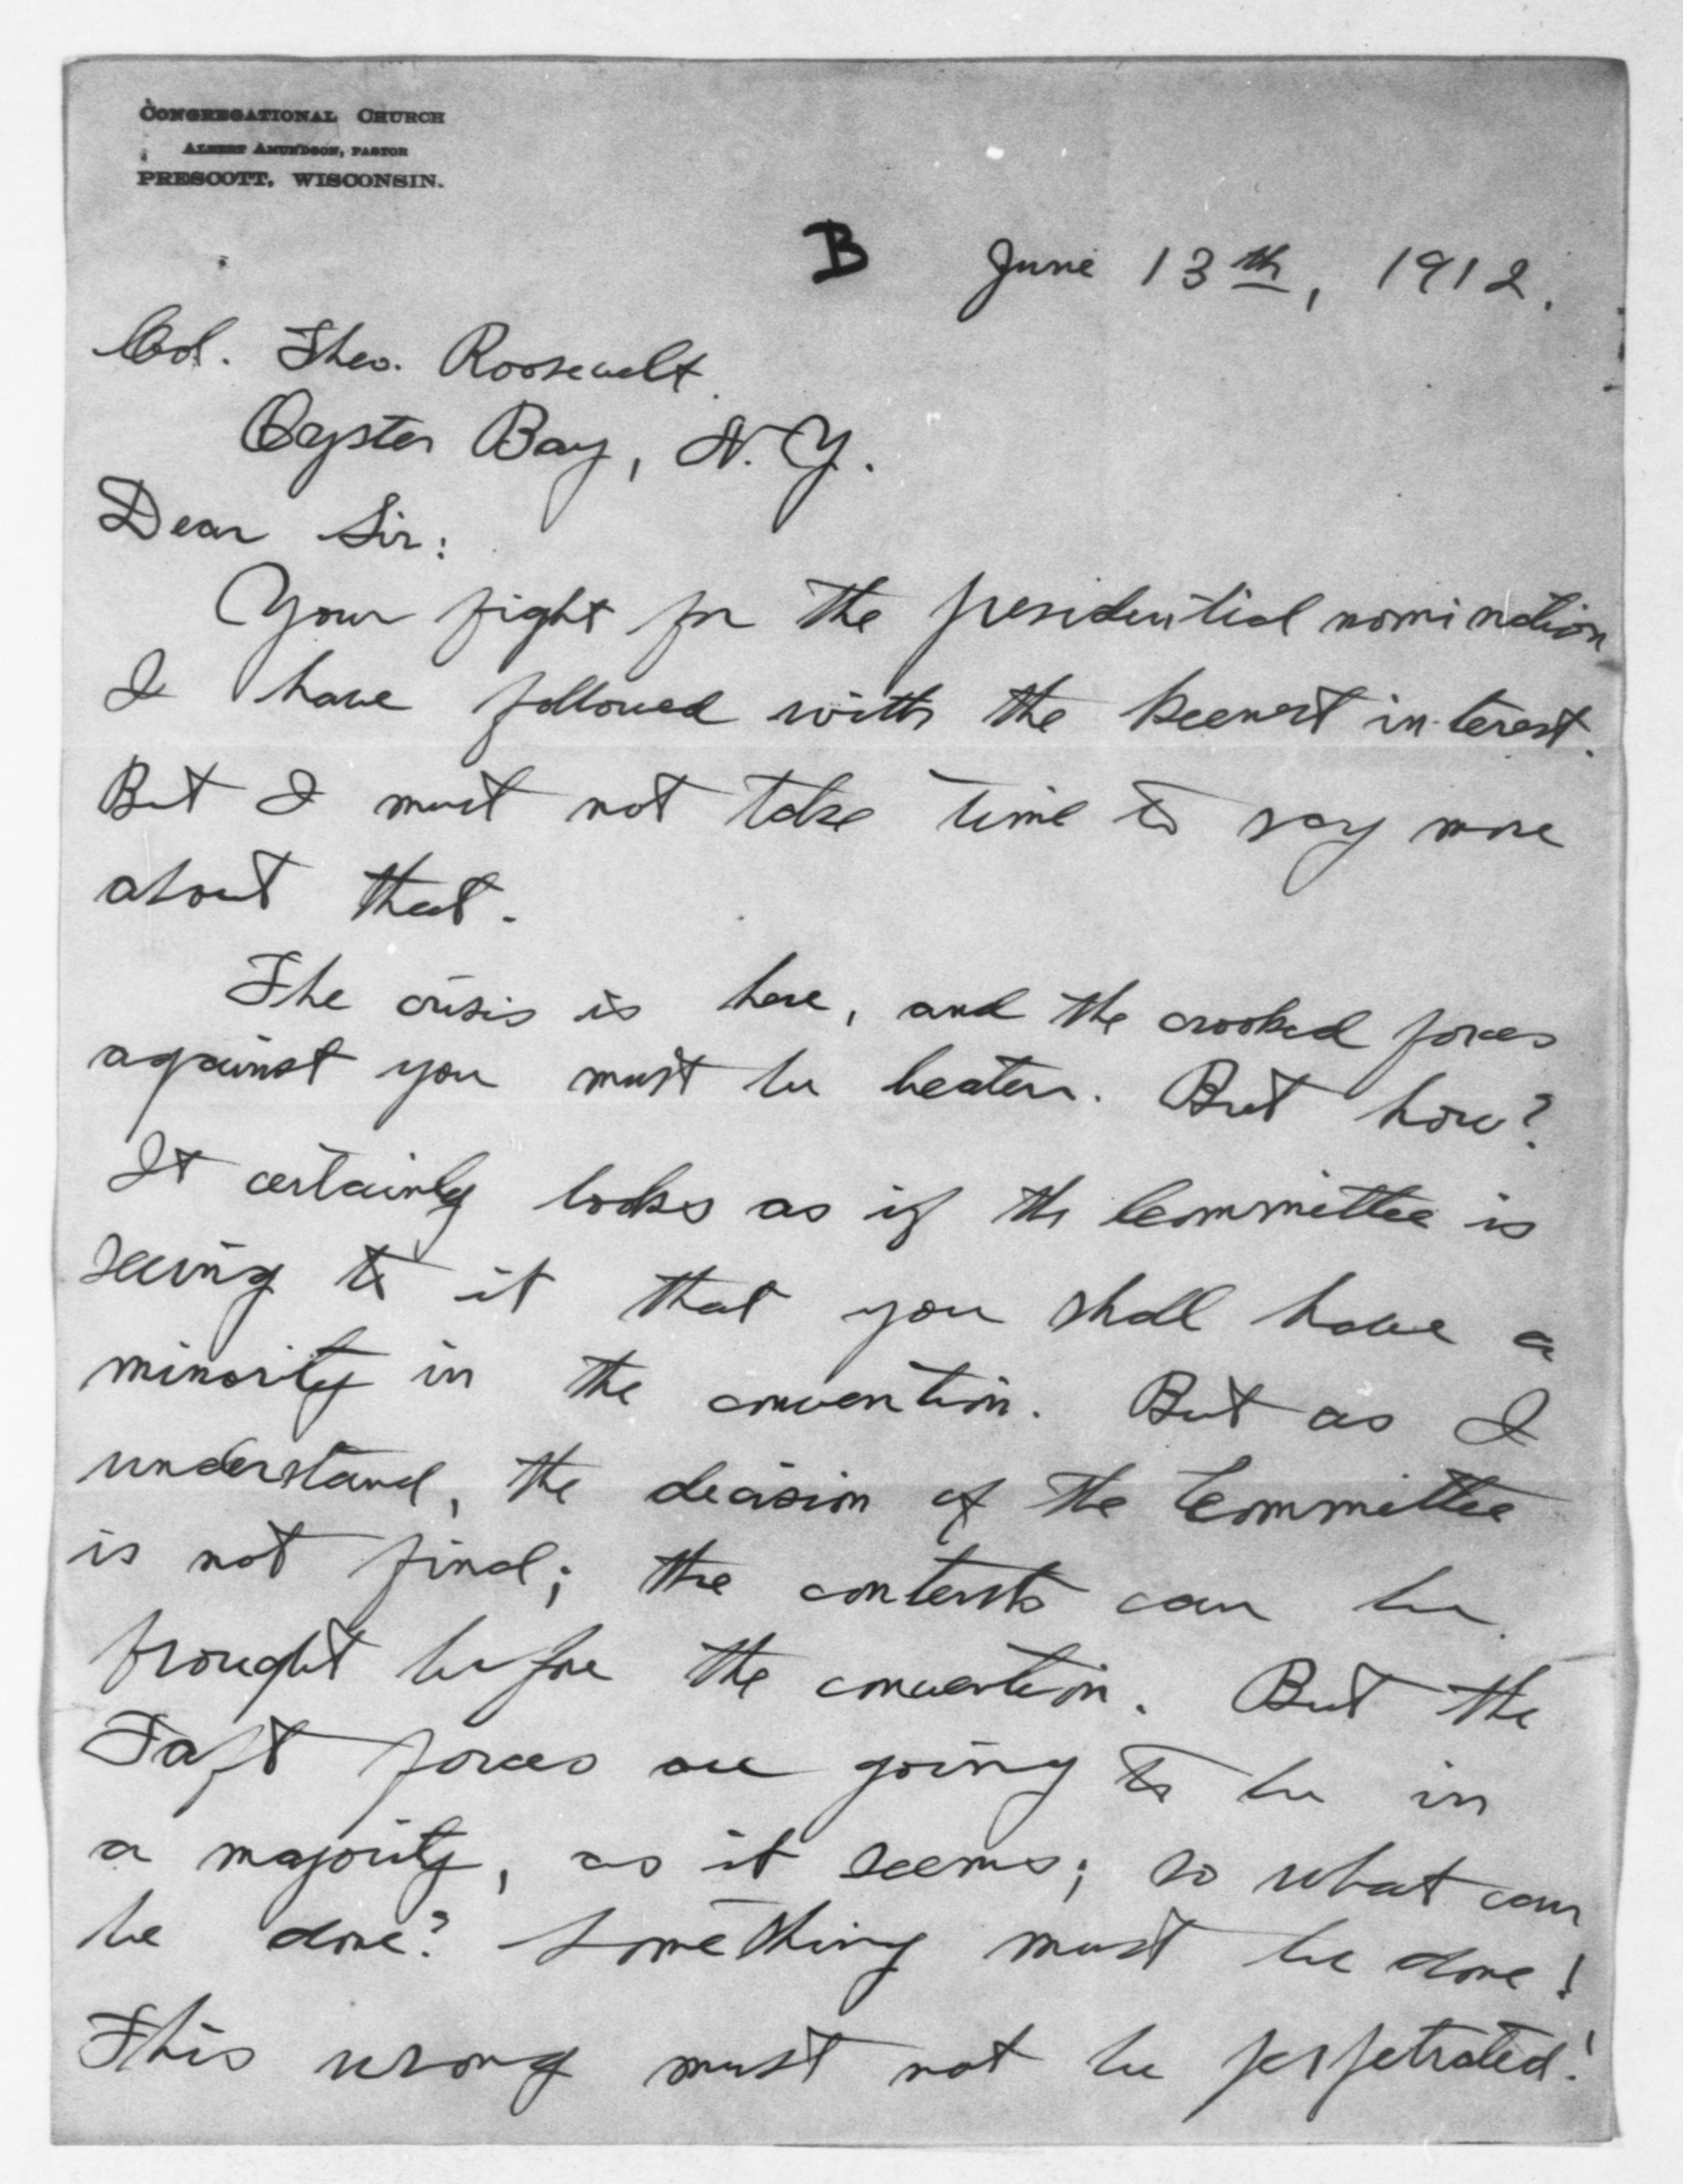 CONGREGATIONAL CHURCH
ALBERT AMUNDSON, PASTOR
PRESCOTT, WISCONSIN.
B June 13th, 1912.
Col. Theo. Roosevelt.
Oyster Bay, N.Y.
Dear Sir:
Your fight for the presidential nomination
I have followed with the keenest interest.
But I must not take time to say more
about that.
The crisis is here, and the crooked forces
against you must be beaten. But how?
It certainly looks as if the Committee is
seeing to it that you shall have a
minority in the convention. But as I
understand, the decision of the Committee
is not final; the contests can be
brought before the convention. But the
Taft forces are going to be in
a majority, as it seems; so what can
be done? Something must be done!
This wrong must not be perpetrated!